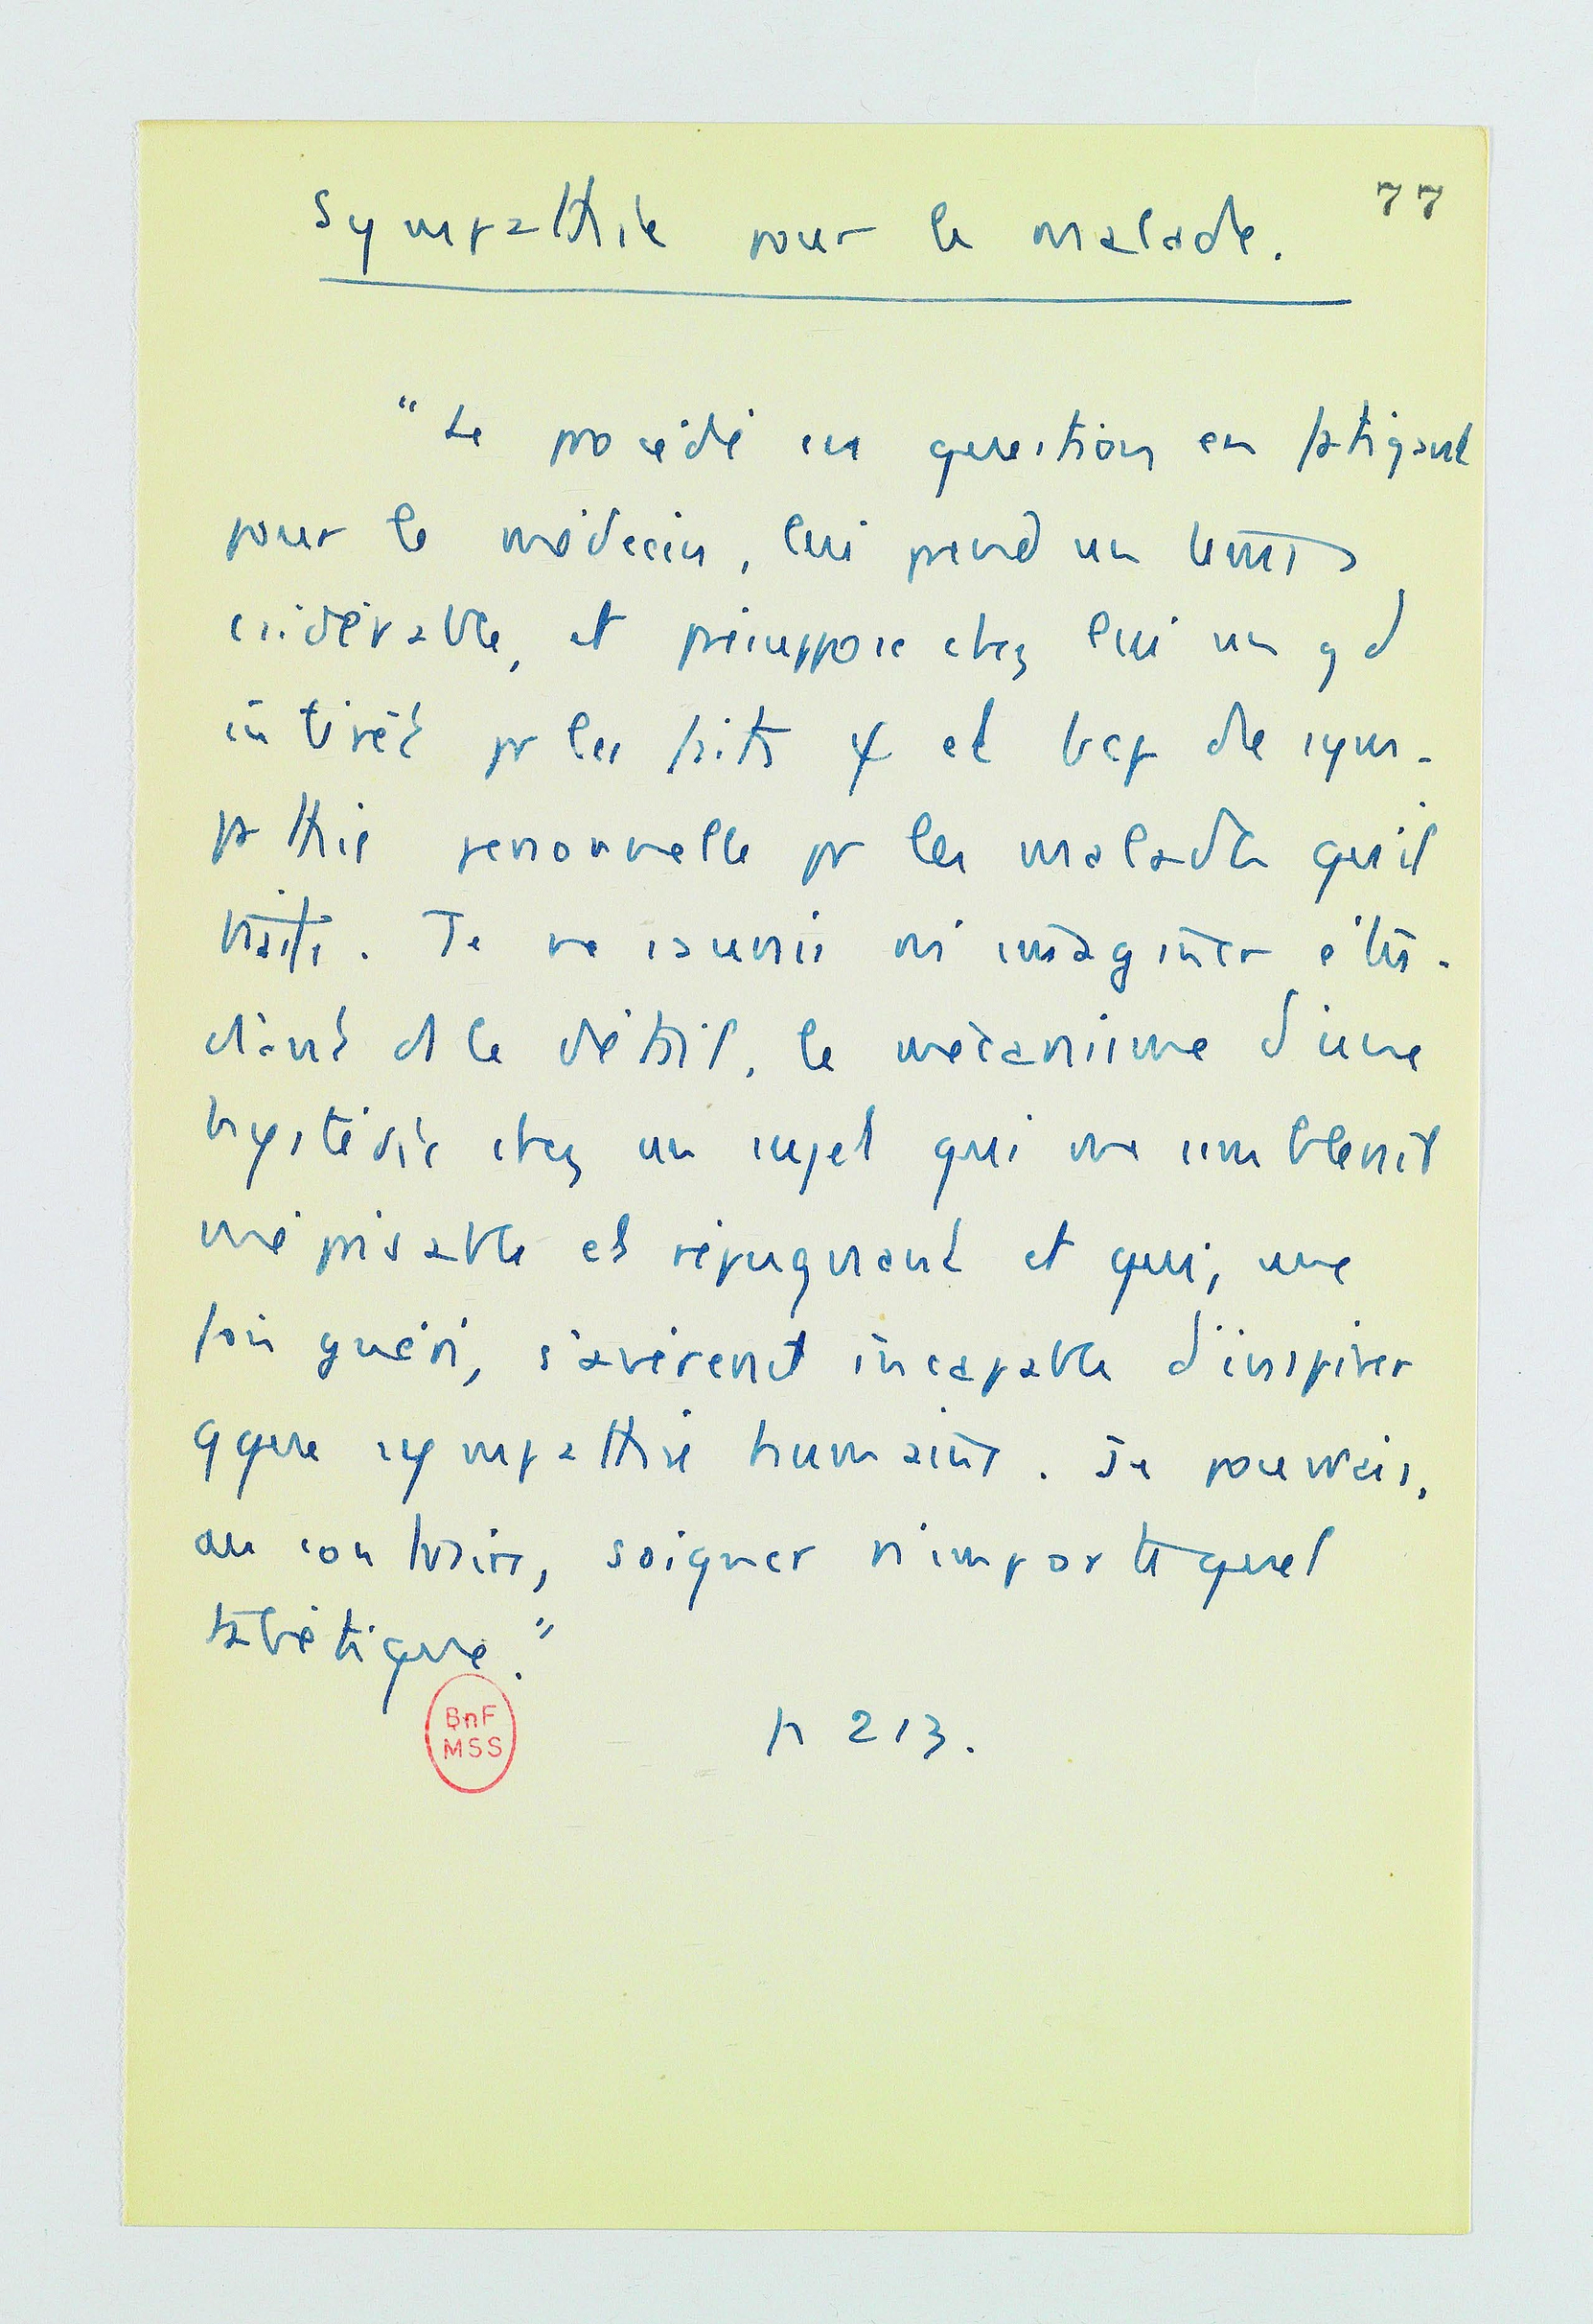 77
Sympathie pour le malade.
"Le procédé en question est fatigant
pour le médecin, lui prend un temps
csidérable, et présuppose chez lui un gd
intérêt pr les faits ψ et bcp de sym-
pathie personnelle pr les malades qu'il
traite. Je ne saurais m'imaginer étu-
diant ds le détail, le mécanisme d'une
hystérie chez un sujet qui me semblerait
méprisable et répugnant et qui, une
fois guéri, s'avérerait incapable d'inspirer
qque sympathie humaine. Je pouvais,
au contraire, soigner n'importe quel
tabétique."
p 213.
BnF
MSS